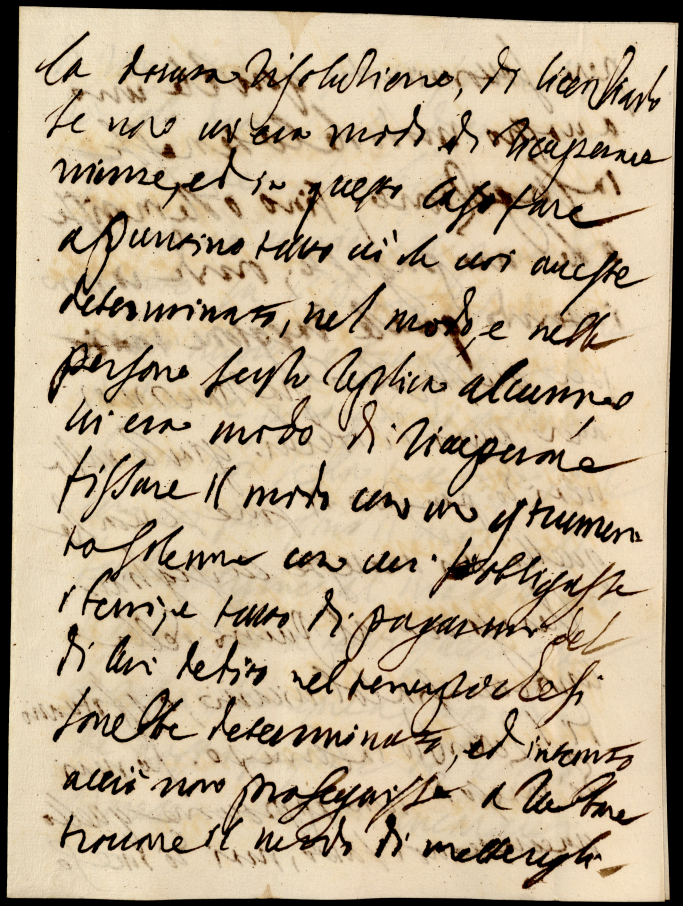 la dovuta risolutione, di licentiarlo
se non vi era modo di ricuperare
niente, ed in questo caso fare
apuntino tutto ciò che voi aveste
determinato, nel modo, e nelle
persone senza replica alcuna, e se
vi era modo di ricuperare
fissare il modo con un istrumen
to solenne con cui si obbligasse
i beni, e tutto di pagarmi del
di lui debito nel tempo che si
sarebbe determinato, ed intanto
acciò non proseguisse a rubbare
trovare il modo di mettergli